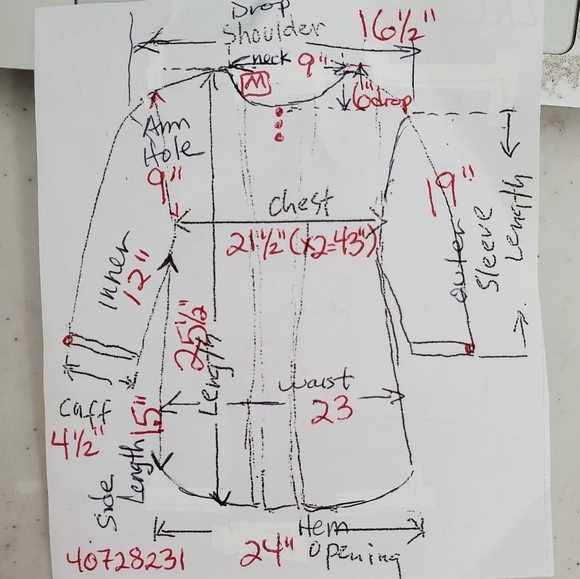 Drop
Shoulder
16 1/2"
neck
9"
M
6" drop
Arm
Hole
9"
Chest
21 1/2" (x2=43")
19"
outer
Sleeve
Length
inner
12"
25 1/2"
Length
waist
23
Cuff
4 1/2"
Side
Length
15"
Hem
opening
24"
40728231